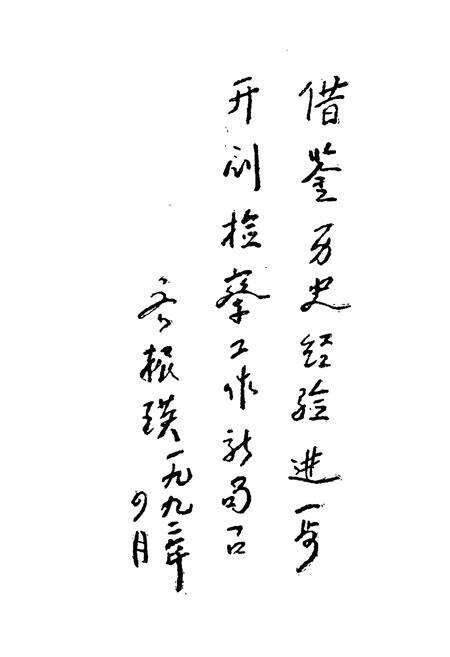 借鉴历史经验进一步
开创检察工作新局面
振瑛
一九九二年
月